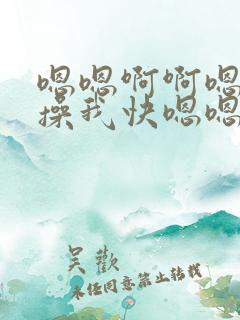 嗯嗯啊啊嗯
操我快嗯嗯
吴歡
未经同意禁止转载